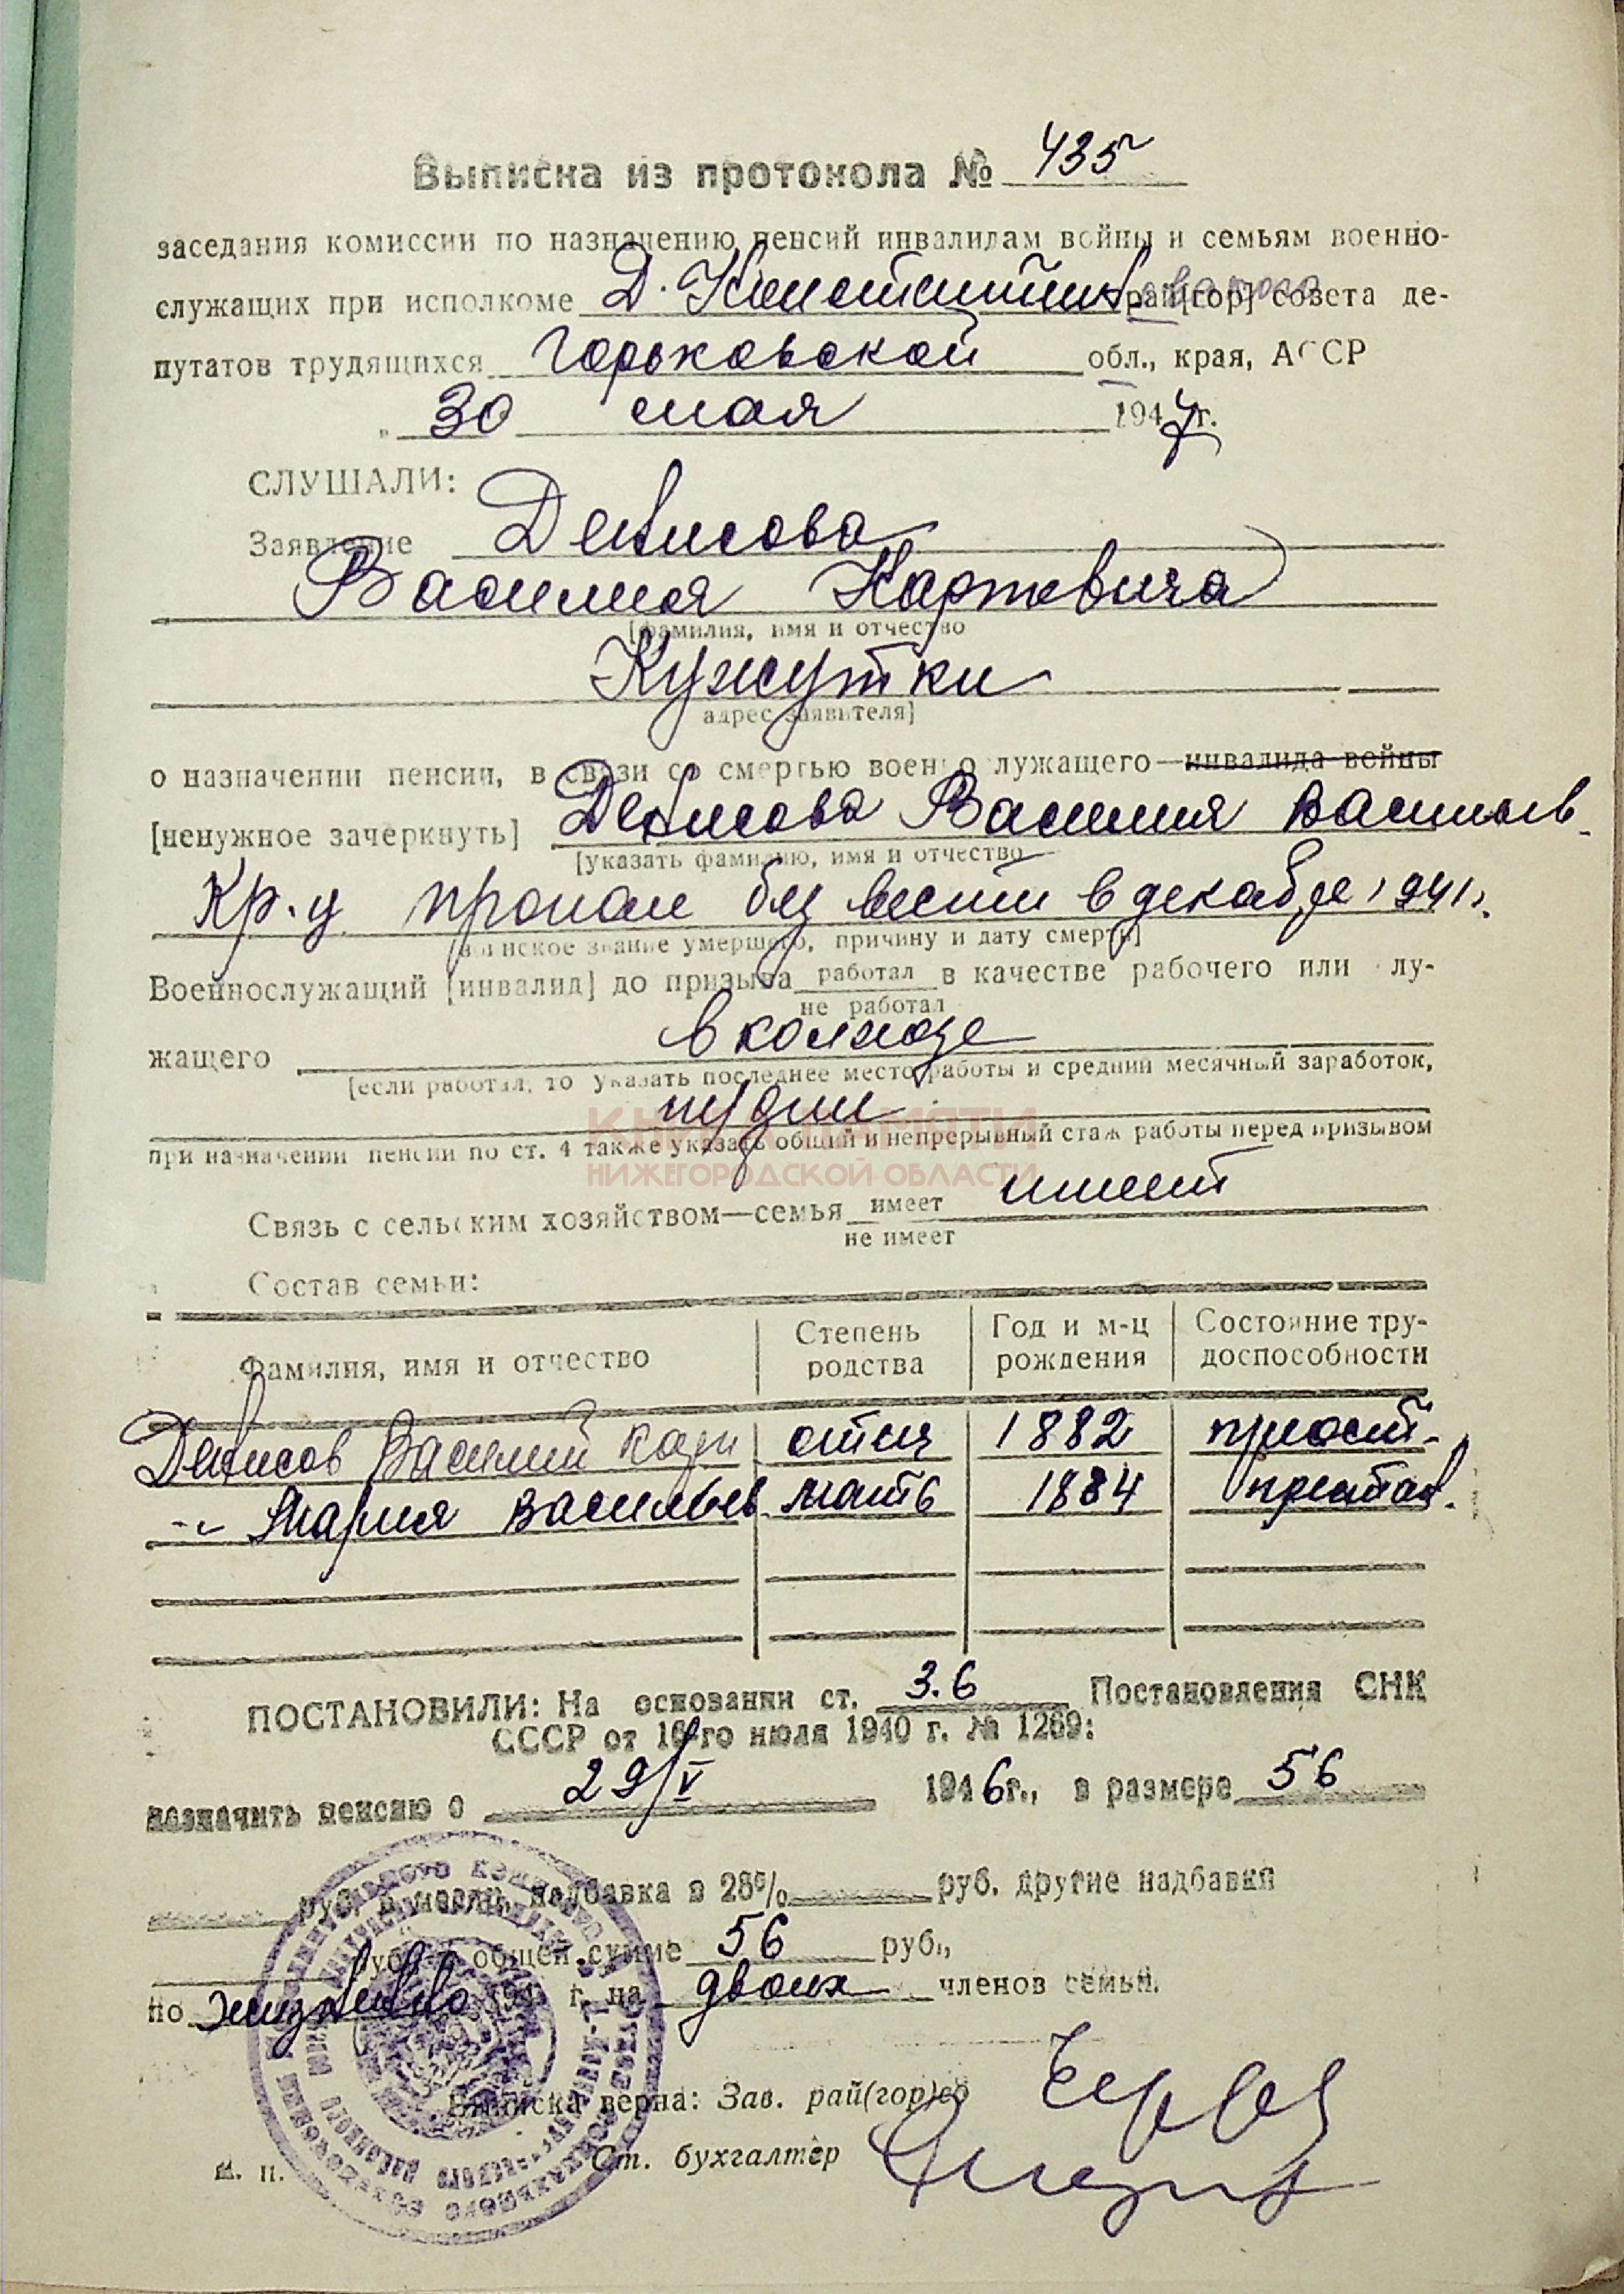 Выписка из протокола № 435
заседания комиссии по назначению пенсий инвалидам войны и семьям военно-
служащих при исполкоме Д. Константиновского рай[гор] совета де-
путатов трудящихся Горьковской обл., края, АССР
„ 30 мая 1947 г.
СЛУШАЛИ:
Заявление Денисова
Василия Карповича
[фамилия, имя и отчество
Кужутки
адрес заявителя]
о назначении пенсии, в связи со смертью военнослужащего—инвалида войны
[ненужное зачеркнуть] Денисова Василия Васильев.
[указать фамилию, имя и отчество
Кр-ц пропал без вести в декабре 1941г.
воинское звание умершего, причину и дату смерти]
Военнослужащий [инвалид] до призыва работал в качестве рабочего или слу-
не работал
жащего в колхозе
[если работал, то указать последнее место работы и средний месячный заработок,
при назначении пенсии по ст. 4 также указать общий и непрерывный стаж работы перед призывом
КНИГА ПАМЯТИ
НИЖЕГОРОДСКОЙ ОБЛАСТИ
Связь с сельским хозяйством—семья имеет имеет
не имеет
Состав семьи:
Фамилия, имя и отчество Степень родства Год и м-ц рождения Состояние трудоспособности
Денисов Василий Карп отец 1882 прест.
-"- Мария Васильев. мать 1884 престар.
ПОСТАНОВИЛИ: На основании ст. 3.6 Постановления СНК
СССР от 16-го июля 1940 г. № 1269:
назначить пенсию с 29/V 1946г., в размере 56
руб. в месяц, надбавка в 25% руб. другие надбавки
руб. в общей сумме 56 руб.,
по жизненно 194 г. на двоих членов семьи.
Выписка верна: Зав. рай(гор)со
м. п. Ст. бухгалтер